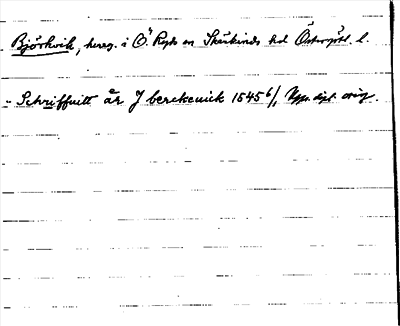 Björkvik, herrg. i Ö. Ryds sn Skärkinds hd Östergötl. l.
- Schriffuitt år J berckeuick 1545 6/1 Upps. dipl. orig.